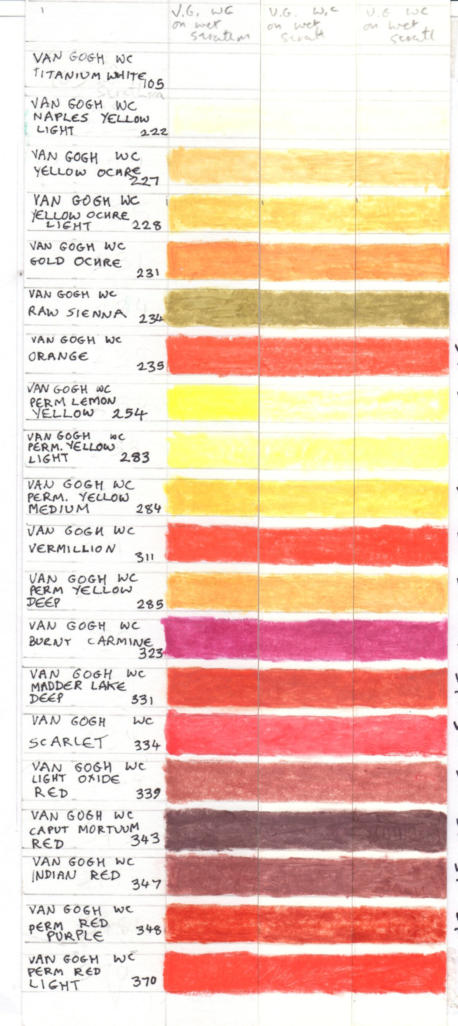 1
V.G. WC
on wet
V.G. W.C
on wet
V.G WC
on wet
VAN GOGH WC
TITANIUM WHITE 105
VAN GOGH WC
NAPLES YELLOW
LIGHT 222
VAN GOGH WC
YELLOW OCHRE
227
VAN GOGH WC
YELLOW OCHRE
LIGHT 228
VAN GOGH WC
GOLD OCHRE
231
VAN GOGH WC
RAW SIENNA 234
VAN GOGH WC
ORANGE
235
VAN GOGH WC
PERM LEMON
YELLOW 254
VAN GOGH WC
PERM. YELLOW
LIGHT 283
VAN GOGH WC
PERM. YELLOW
MEDIUM 284
VAN GOGH WC
VERMILLION 311
VAN GOGH WC
PERM YELLOW
DEEP 285
VAN GOGH WC
BURNT CARMINE
323
VAN GOGH WC
MADDER LAKE
DEEP 331
VAN GOGH WC
SCARLET 334
VAN GOGH WC
LIGHT OXIDE
RED 339
VAN GOGH WC
CAPUT MORTUUM
RED 343
VAN GOGH WC
INDIAN RED
347
VAN GOGH WC
PERM RED 348
PURPLE
VAN GOGH WC
PERM RED
LIGHT 370